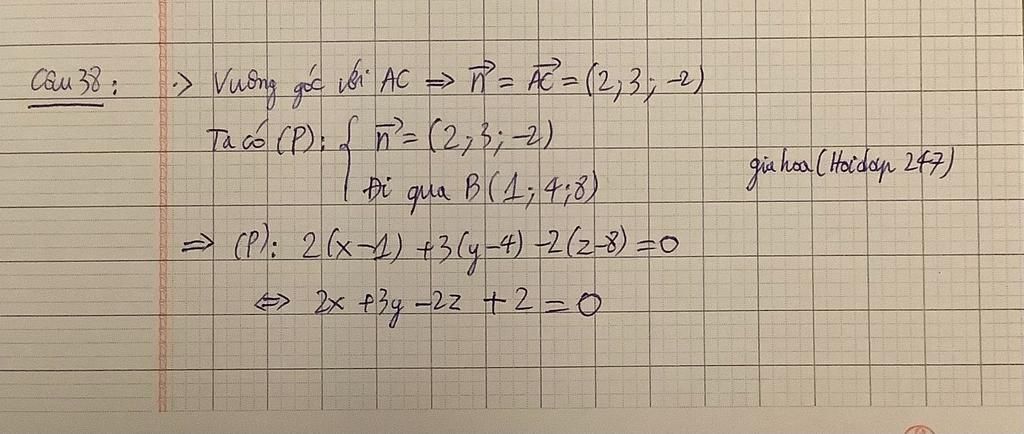 Câu 38: -> Vuông góc với AC ⇒ n⃗ = AC⃗ = (2; 3; -2)
Ta có (P): { n⃗ = (2; 3; -2)
Đi qua B(1; 4; 8)
giahoa (Hoidap 247)
⇒ (P): 2(x-1) + 3(y-4) - 2(z-8) = 0
⇔ 2x + 3y - 2z + 2 = 0